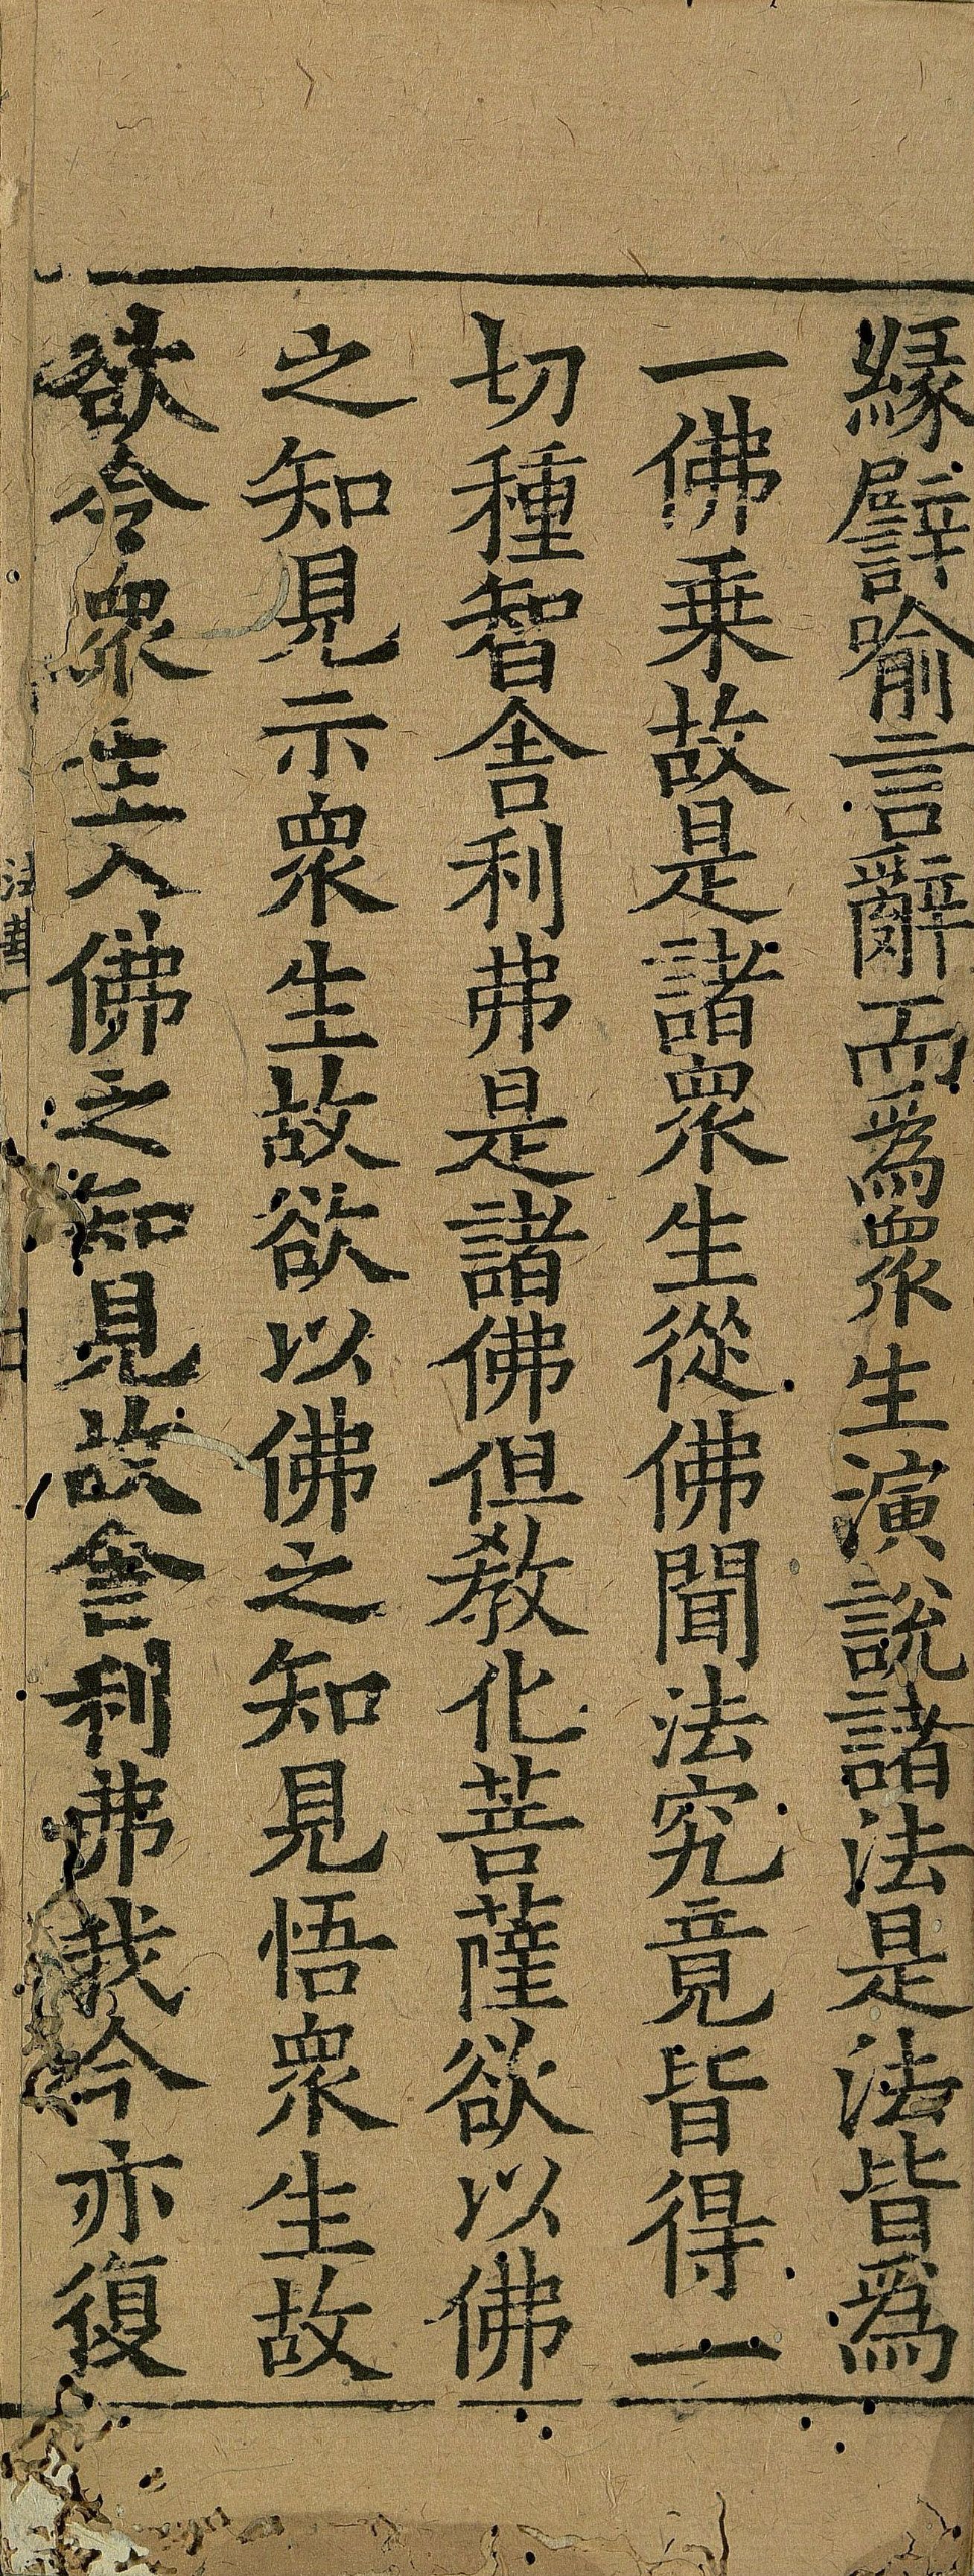 縁譬喻言辭而為衆生演說諸法是法皆為
一佛乗故是諸衆生從佛聞法究竟皆得一
切種智舍利弗是諸佛但教化菩薩欲以佛
之知見示衆生故欲以佛之知見悟衆生故
欲令衆生入佛之知見故舍利弗我今亦復
法華一